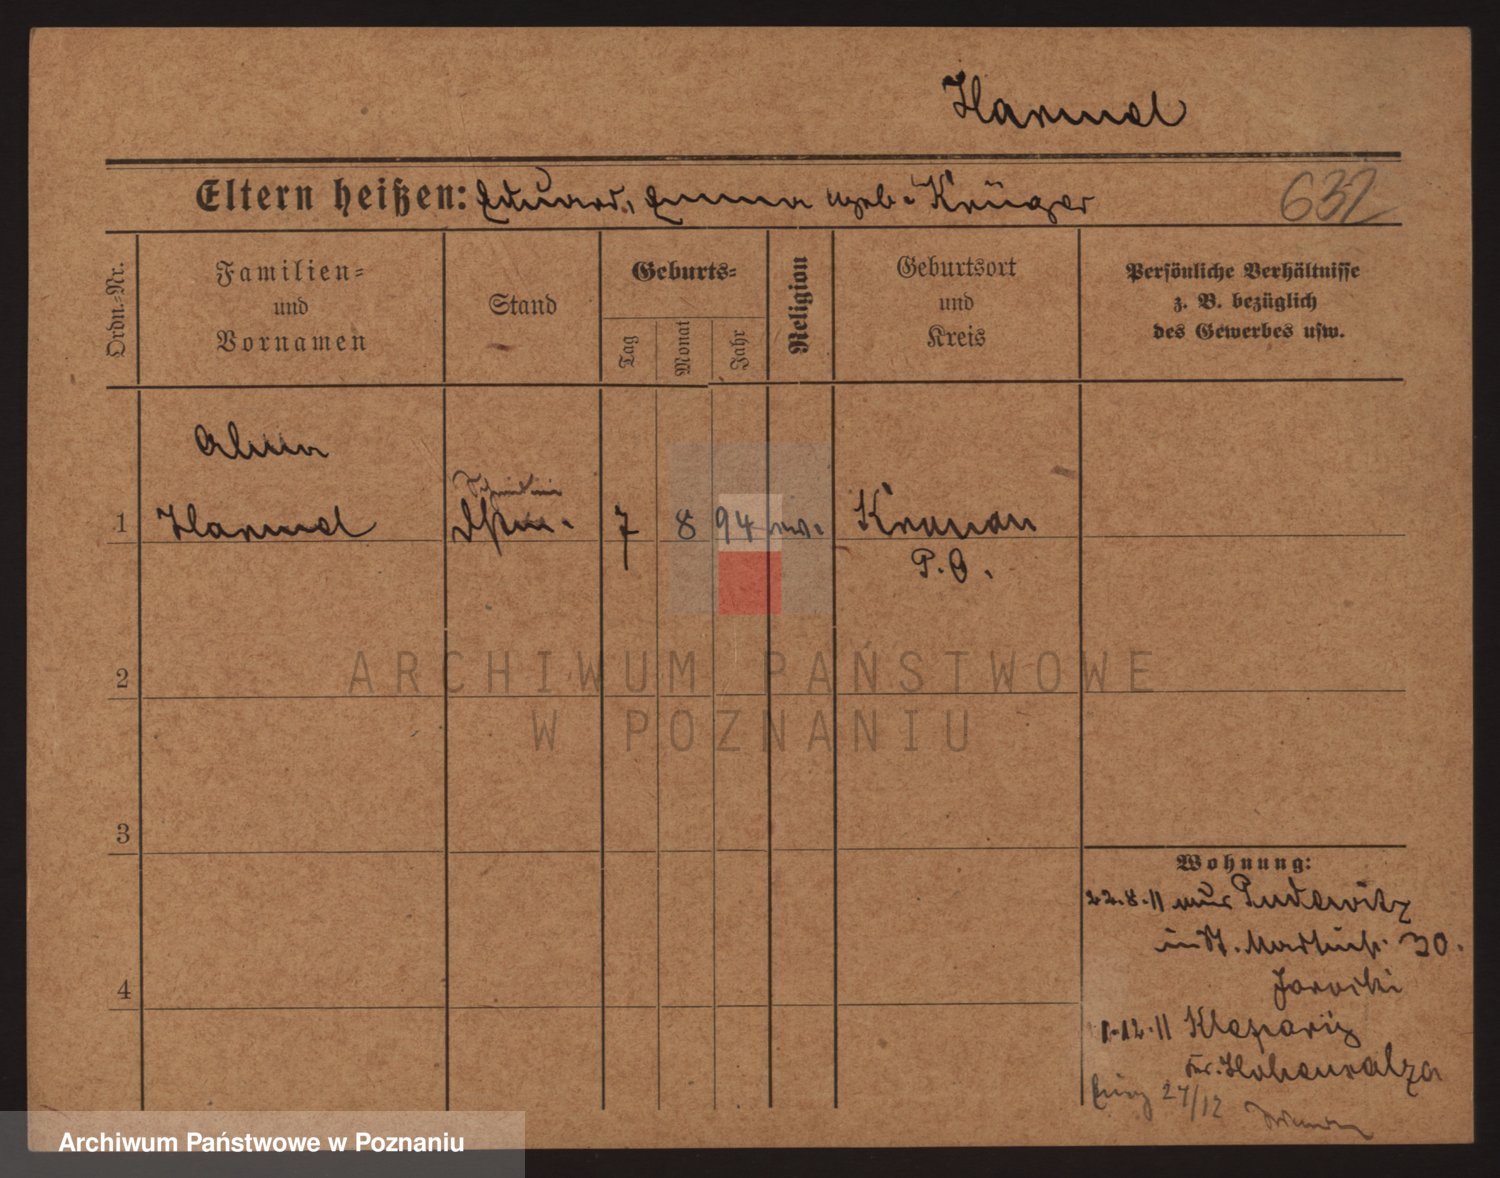 Harmel
Eltern heißen: Eduard, Emma geb. Krüger
632
Ordn.-Nr.
Familien-
und
Vornamen
Stand
Geburts-
Tag
Monat
Jahr
Religion
Geburtsort
und
Kreis
Persönliche Verhältnisse
z. B. bezüglich
des Gewerbes usw.
Alma
1 Harmel 7 8 94 ev. Kronau
P. O.
2
3
4
Wohnung:
22.8.11 aus Pudewitz
in St. Martinstr. 30.
Jarocki
1.12.11
Kr. Hohensalza
27/12
ARCHIWUM PAŃSTWOWE
W POZNANIU
Archiwum Państwowe w Poznaniu